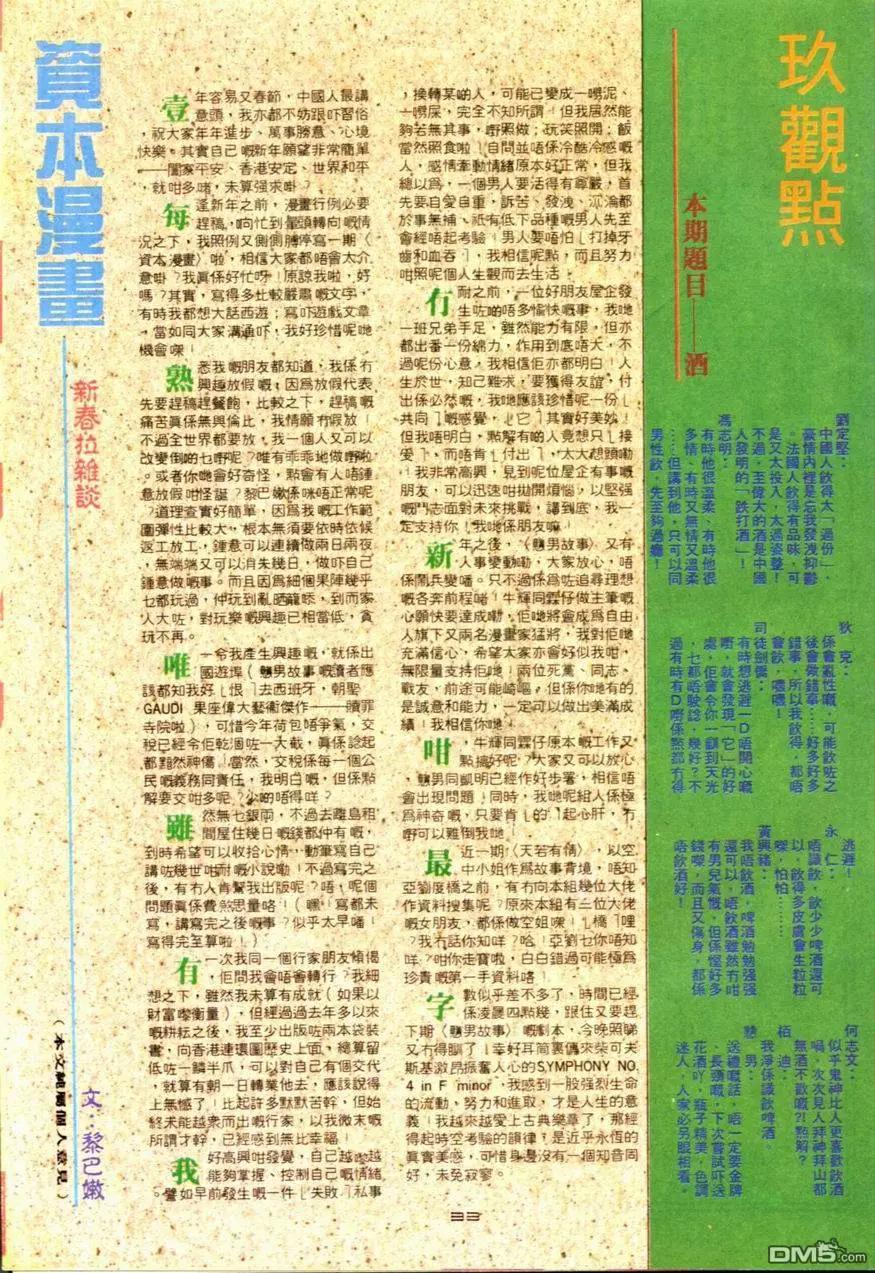 資本漫畫
新春拉雜談
文：黎巴嫩
（本文純屬個人意見）
壹年容易又春節，中國人最講
意頭，我亦都不妨跟吓習俗
，祝大家年年進步、萬事勝意、心境
快樂。其實自己嘅新年願望非常簡單
——闔家平安、香港安定、世界和平
，就咁多啫，未算强求啩？
每逢新年之前，漫畫行例必要
趕稿，向忙到暈頭轉向嘅情
況之下，我照例又側側膊停寫一期〈
資本漫畫〉啦，相信大家都唔會太介
意啩？我眞係好忙呀！原諒我啦，好
嗎？其實，寫得多比較嚴肅嘅文字，
有時我都想大話西遊；寫吓遊戲文章
，當如同大家溝通吓，我好珍惜呢哋
機會㗎！
熟悉我嘅朋友都知道，我係冇
興趣放假嘅；因爲放假代表
先要趕稿趕餐飽，比較之下，趕稿嘅
痛苦眞係無與倫比，我情願冇假放！
不過全世界都要放，我一個人又可以
改變倒啲乜嘢呢？唯有乖乖地做嘢啦
。或者你哋會好奇怪，點會有人唔鍾
意放假咁怪誕？黎巴嫩係咪唔正常呢
？道理查實好簡單，因爲我嘅工作範
圍彈性比較大，根本無須要依時依候
返工放工，鍾意可以連續做兩日兩夜
，無端端又可以消失幾日，做吓自己
鍾意做嘅事。而且因爲細個果陣幾乎
乜都玩過，仲玩到亂晒籠㖭，到而家
人大咗，對玩樂嘅興趣已相當低，貪
玩不再。
唯一令我產生興趣嘅，就係出
國遊埠（戇男故事嘅讀者應
該都知我好「恨」去西班牙，朝聖
GAUDI 果座偉大藝術傑作——贖罪
寺院啦），可惜今年荷包唔爭氣，交
稅已經令佢乾涸咗一大截，眞係諗起
都黯然神傷！當然，交稅係每一個公
民嘅義務同責任，我明白嘅，但係點
解要交咁多呢？少啲唔得咩？
雖然無乜銀両，不過去離島租
間屋住幾日嘅錢都仲有嘅，
到時希望可以收拾心情，動筆寫自己
講咗幾世吔耐嘅小說嘞！不過寫完之
後，有冇人肯幫我出版呢？唔，呢個
問題眞係費煞思量咯！（嘿！寫都未
寫，講寫完之後嘅事？似乎太早噃！
寫得完至算啦！）
有一次我同一個行家朋友傾偈
，佢問我會唔會轉行？我細
想之下，雖然我未算有成就（如果以
財富嚟衡量），但經過過去年多以來
嘅耕耘之後，我至少出版咗兩本袋裝
書，向香港連環圖歷史上面，總算留
低咗一鱗半爪，可以對自己有個交代
，就算有朝一日轉業他去，應該說得
上無憾了！比起許多默默苦幹，但始
終未能越衆而出嘅行家，以我微末嘅
所謂才幹，已經感到無比幸福！
我好高興咁發覺，自己越嚟越
能夠掌握、控制自己嘅情緒
。譬如早前發生嘅一件「失敗」私事
，換轉某啲人，可能已變成一嚿泥、
一嚿屎，完全不知所謂！但我居然能
夠若無其事，嘢照做；玩笑照開；飯
當然照食啦！自問並唔係冷酷冷感嘅
人，感情牽動情緒原本好正常，但我
總以爲，一個男人要活得有尊嚴，首
先要自愛自重，訴苦、發洩、沉淪都
於事無補，祇有低下品種嘅男人先至
會經唔起考驗！男人要唔怕「打掉牙
齒和血吞」，我相信呢點，而且努力
咁照呢個人生觀而去生活。
冇耐之前，一位好朋友屋企發
生咗啲唔多愉快嘅事，我哋
一班兄弟手足，雖然能力有限，但亦
都出番一份綿力，作用到底唔大，不
過呢份心意，我相信佢亦都明白！人
生於世，知己難求，要獲得友誼，付
出係必然嘅，我哋應該珍惜呢一份「
共同」嘅感覺，「它」其實好美妙！
但我唔明白，點解有啲人竟想只「接
受」，而唔肯「付出」，太大想頭嘞
！我非常高興，見到呢位屋企有事嘅
朋友，可以迅速咁拋開煩惱，以堅强
嘅鬥志面對未來挑戰，講到底，我一
定支持你！我哋係朋友嘛！
新年之後，〈戇男故事〉又有
人事變動嘞，大家放心，唔
係鬧兵變噃。只不過係爲咗追尋理想
嘅各奔前程啫！牛輝同霖仔做主筆嘅
心願快要達成嘞，佢哋將會成爲自由
人旗下又兩名漫畫家猛將，我對佢哋
充滿信心，希望大家亦會好似我咁，
無限量支持佢哋！兩位死黨、同志、
戰友，前途可能崎嶇，但係你哋有的
是誠意和能力，一定可以做出美滿成
績！我相信你哋！
咁，牛輝同霖仔原本嘅工作又
點搞好呢？大家又可以放心
，戇男同凱明已經作好步署，相信唔
會出現問題！同時，我哋呢組人係極
爲神奇嘅，只要肯「的」起心肝，冇
嘢可以難倒我哋！
最近一期〈天若有情〉，以空
中小姐作爲故事背境，唔知
亞劉度橋之前，有冇向本組幾位大佬
作資料搜集呢？原來本組有三位大佬
嘅女朋友，都係做空姐㗎！「橋」哩
？我冇話你知咩？哈！亞劉乜你唔知
咩？咁你走寶啦，白白錯過可能極爲
珍貴嘅第一手資料咯！
字數似乎差不多了，時間已經
係凌晨四點幾，跟住又要趕
下期〈戇男故事〉嘅劇本，今晚照睇
又冇得瞓了！幸好耳筒裏傳來柴可夫
斯基激昂振奮人心的SYMPHONY NO.
4 in F minor，我感到一股强烈生命
的流動，努力和進取，才是人生的意
義！我越來越愛上古典樂章了，那經
得起時空考驗的韻律，是近乎永恆的
眞實美感，可惜身邊沒有一個知音同
好，未免寂寥。
33
玖觀點
本期題目——酒
劉定堅：
中國人飲得太「過份」，
豪情內裡是忘我發洩抑鬱
，法國人飲得有品味，可
是又太投入，太過姿整！
不過，至偉大的酒是中國
人發明的「跌打酒」！
馮志明：
有時他很溫柔、有時他很
多情、有時又無情又溫柔
……但講到他，只可以同
男性飲，先至夠過癮！
狄克：
係會亂性嘅，可能飲咗之
後會做錯事……好多好多
錯事，所以我飲得，都唔
會飲，嘿嘿！
司徒劍僑：
有時想逃避一D唔開心嘅
嘢，就會發現「它」的好
處，佢會令你一瞓到天光
，乜都唔駛諗，幾好？不
過有時有D嘢係點都冇得
逃避！
永仁：
唔識飲，飲少少啤酒還可
以，飲得多皮膚會生粒粒
㗎，怕怕……
黃興豬：
我唔飲酒，啤酒勉勉强强
還可以，唔飲酒雖然冇咁
有男兒氣慨，但係慳好多
錢㗎，而且又傷身，都係
唔飲酒好！
何志文：
似乎鬼神比人更喜歡飲酒
喎，次次見人拜神拜山都
無酒不歡嘅？點解？
栢迪：
我淨係識飲啤酒。
戇男：
送禮嘅話，唔一定要金牌
、長頸嘅，下次嘗試吓送
花酒吖，瓶子精美，色調
迷人，人家必另眼相看。
DM5.com